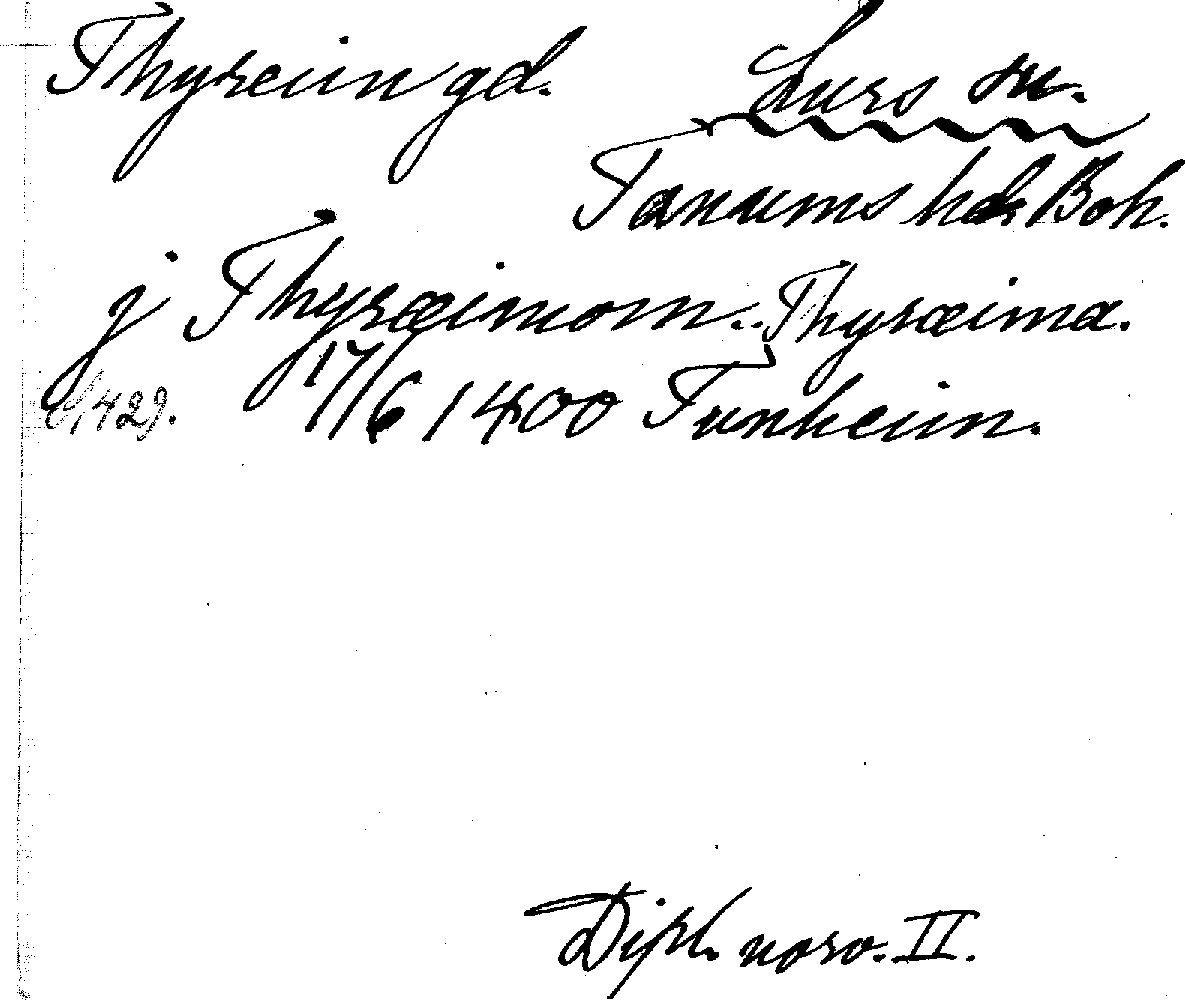 Thyreim gd. Lurs sn.
Tanums hd. Boh.
j Thyræimom. Thyræima.
S. 429. 17/6 1400 Tunheim.
Dipl. norv. II.